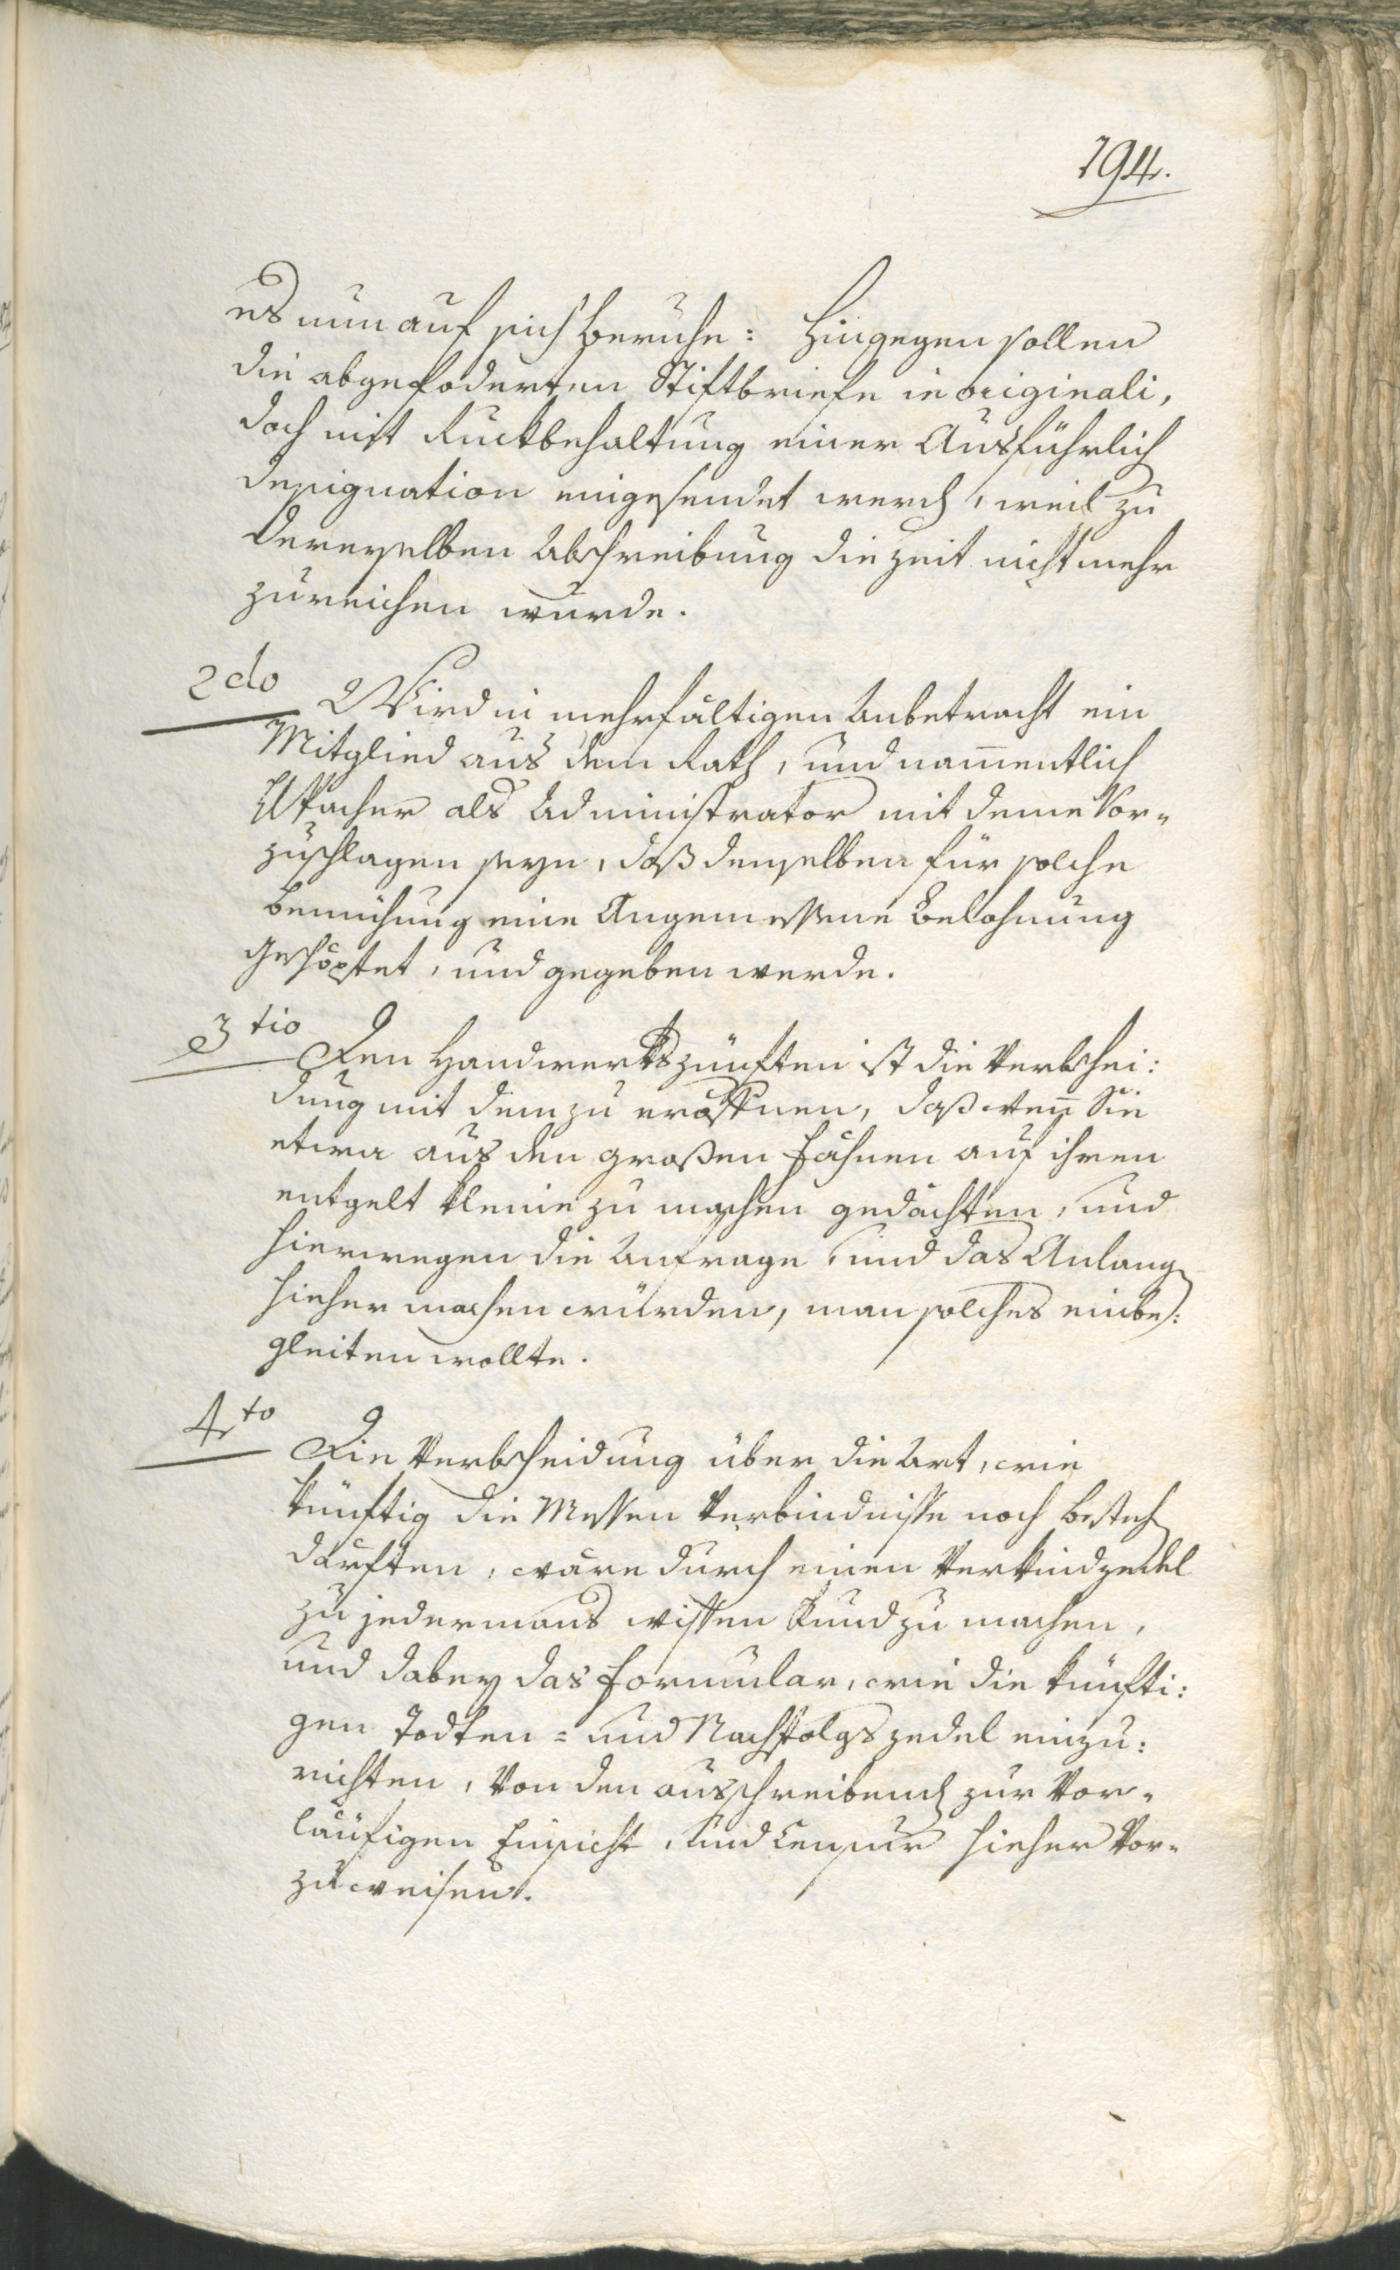 194.
es nun auf sich beruhe: Hingegen sollen
die abgefoderten Stiftbriefe in originali,
doch mit Ruckbehaltung einer Ausführlich
designation eingesendet werd, weil zu
derenselben Abschreibung die zeit nicht mehr
zureichen wurde.
2do Wird in mehrfältigen Anbetracht ein
Mitglied aus dem Rath, und nam̅entlich
als Administrator mit deme Vor-
zuschlagen seyn, daß denselben für solche
bemühung eine Angemessene Belohnung
geschöpfet, und gegeben werde.
3tio Den Handwerkszünften ist die Verbschei:
dung mit dem zu eröffnen, daß wen̅ Sie
etwa aus den großen Fahnen auf ihren
entgelt kleine zu machen gedächten, und
hierwegen die Anfrage, und das Anlang
hieher machen würden, man solches einbe:
gleiten wollte.
4to Die Verbscheidung über die Art, wie
künftig die Messen Verbindnisse noch besteh
dürften, wäre durch einen Verkindzedel
zu jedermans wissen kund zu machen,
und dabey das Formular, wie die künfti:
gen Todten = und Nachfolgszedel einzu:
richten, Von den ausschreibend zur Vor-
läufigen Einsicht, und Censur hieher Vor-
zuweisen.